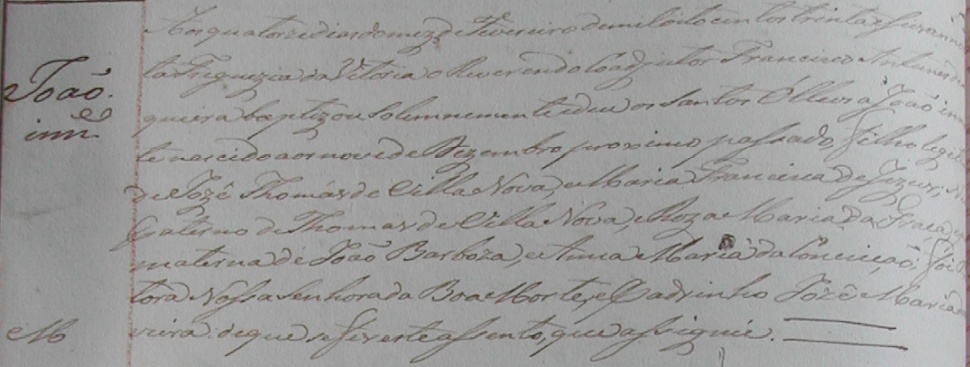 João.
inn.e
M
Aos quatorze dias do mez de Fevereiro de mil oito centos trinta e
ta Freguezia da Vitoria o Reverendo Coadjutor Francisco Antunes
queira baptizou solemnemente e deu os Santos Olleos a João inn
te nascido aos nove de Dezembro proximo passado, filho legit
de Jozé Thomás de Villa Nova, e Maria Francisca de Jezus,
Paterno de Thomas de Villa Nova, e Roza Maria da Graça,
materna de João Barboza, e Anna Maria da Conceição, foi
tora Nossa Senhora da Boa Morte, e Padrinho Jozé Maria
vieira. de que se fez este assento, que assignei.